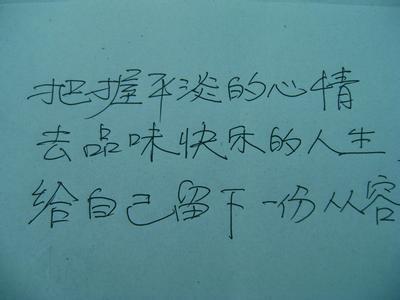 把握平淡的心情
去品味快乐的人生
给自己留下一份从容